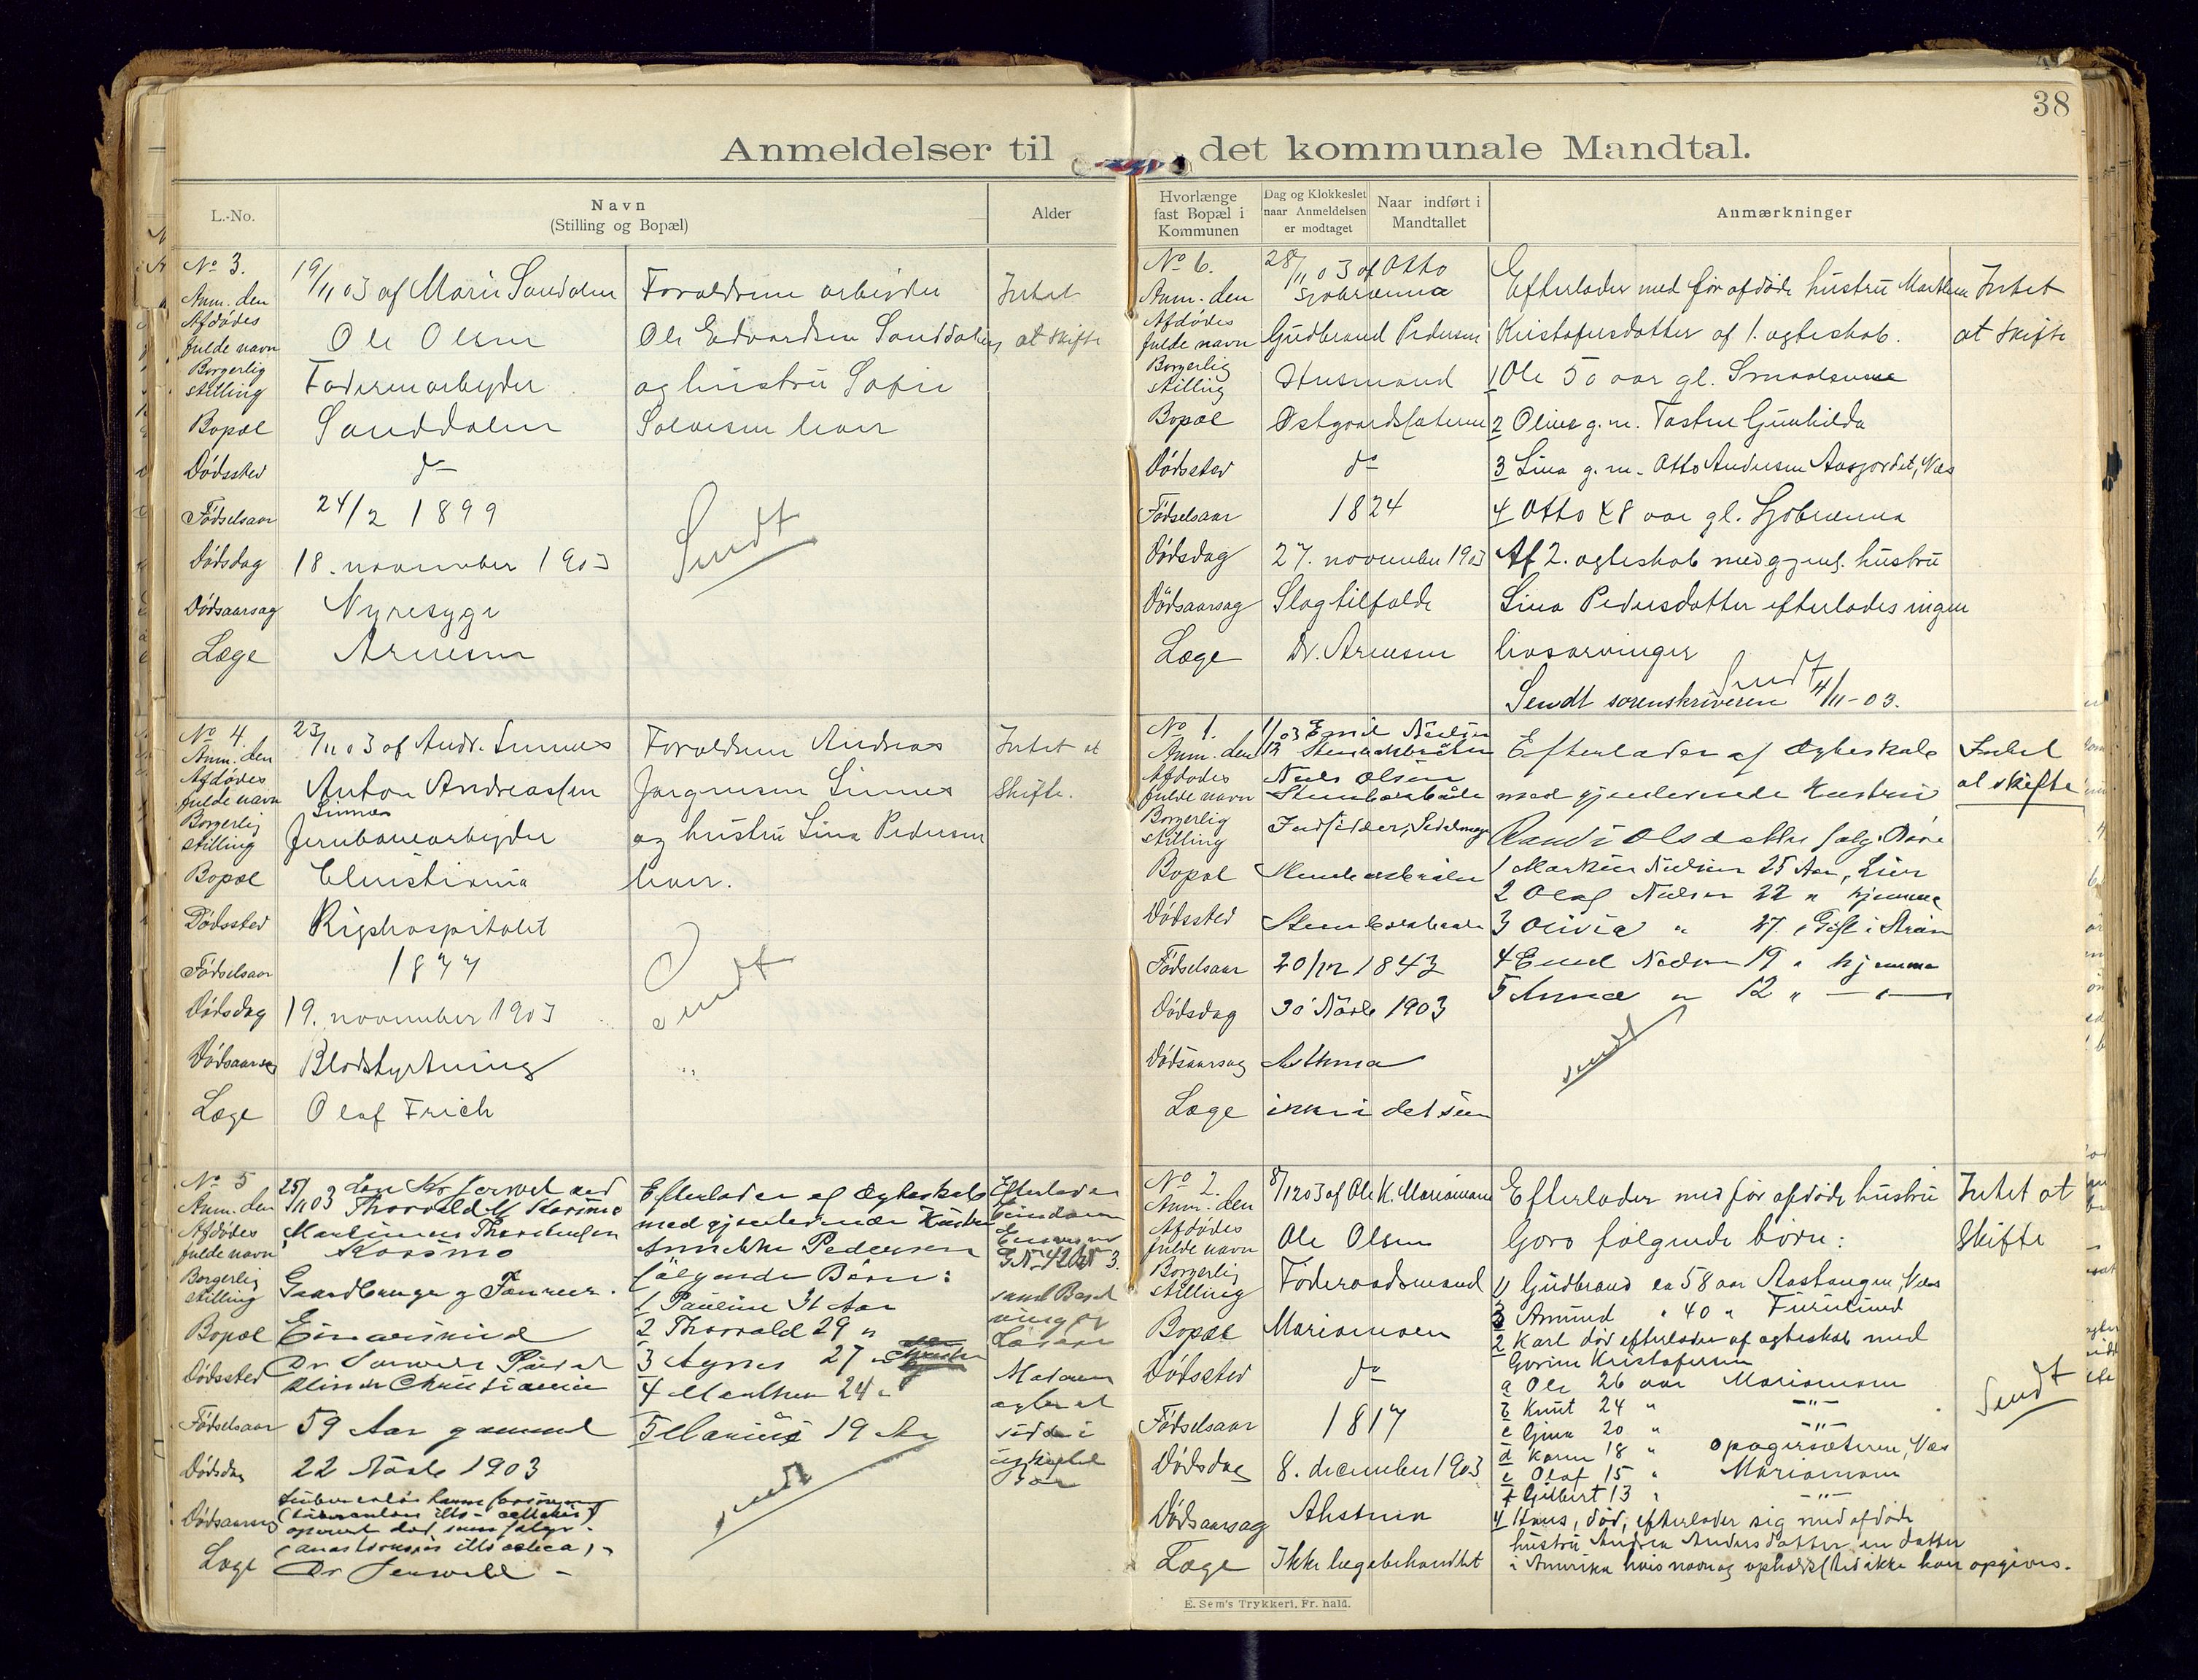 38
Anmeldelser til det kommunale Mandtal.
L.-No.
Navn
(Stilling og Bopæl)
Alder
Hvorlænge
fast Bopæl i
Kommunen
Dag og Klokkeslet
naar Anmeldelsen
er modtaget
Naar indført i
Mandtallet
Anmærkninger
No 3.
Anm. den 19/11 03 af Marie Sanddalen
Afdødes
fulde navn Ole Olsen
Borgerlig
stilling Faderen arbeyder
Bopæl Sanddalen
Dødssted do
Fødselsaar 24/2 1899
Dødsdag 18. november 1903
Dødsaarsag Nyresyge
Læge Arnesen
Forældrene arbeyder
Ole Edvardsen Sanddalen
og hustru Sofie
lever
Sendt
Intet
at skifte
No 4.
Anm. den 23/11 03 af Andr. Linnes
Afdødes
fulde navn Anton Andreassen
Linnes
Borgerlig
stilling Jernbanearbeyder
Bopæl Christiania
Dødssted Rigshospitalet
Fødselsaar 1877
Dødsdag 19. november 1903
Dødsaarsag Blodstyrtning
Læge Olaf Frich
Forældrene Andreas
Jørgensen Linnes
og hustru Lina Pedersen
lever.
Sendt
Intet at
skifte.
No 5
Anm. den 25/11 03
Thorvald M Korsmo
Afdødes
fulde navn Martinus Thorstensen
Korsmo
Borgerlig
stilling Gaardbruger
Bopæl
Dødssted
Christiania
Fødselsaar 59 Aar gammel
Dødsdag 22 Novbr 1903
Dødsaarsag
Læge Dr
Efterlader af Ægteskab
med gjenlevende Hustru
Pedersen
følgende Børn:
1 Pauline 31 Aar
2 Thorvald 29 "
3 Agnes 27 "
4 Marthea 24 "
5 Marius 19 Aar
sendt
Efterlader
No 6.
Anm. den 28/11 03 af Otto
Sjøbrænna
Afdødes
fulde navn Gudbrand Pedersen
Borgerlig
stilling Husmand
Bopæl Østgaardsæteren
Dødssted do
Fødselsaar 1824
Dødsdag 27. november 1903
Dødsaarsag Slagtilfælde
Læge Dr. Arnesen
Efterlader med før afdøde hustru Marthea
Kristofersdatter af 1. ægteskab.
1 Ole 50 aar gl.
2 g. m. Gunhilda
3 Lina g. m. Otto Andersen Aasjordet, Næs
4 Otto 48 aar gl. Sjøbrænna
Af 2. ægteskab med gjenl. hustru
Lina Pedersdatter efterlades ingen
livsarvinger
Sendt
Sendt sorenskriveren 4/11-03.
Intet
at skifte
No 1.
Anm. den Emil Nielsen
Afdødes
fulde navn Niels Olsen
Borgerlig
stilling
Bopæl
Dødssted
Fødselsaar 20/12 1843
Dødsdag 30 Novbr 1903
Dødsaarsag Asthma
Læge
Efterlader af Ægteskab
med gjenlevende Hustru
Olsdatter følg. Børn
1 Nielsen 25 Aar, Lier
2 Olaf Nielsen 22 " hjemme
3 Olivia " 27 " Gift i
4 Emil Nielsen 19 " hjemme
5 Anna " 12 " — " —
sendt
Intet
at skifte
No 2.
Anm. den 8/12 03 af Ole K. Mariamoen
Afdødes
fulde navn Ole Olsen
Borgerlig
stilling Føderaadsmand
Bopæl Mariamoen
Dødssted do
Fødselsaar 1817
Dødsdag 8. december 1903
Dødsaarsag
Læge Ikke lægebehandlet
Efterlader med før afdøde hustru
Goro følgende børn:
1 Gudbrand ca 58 aar Aastangen, Næs
3 Amund " 40 " Furulund
2 Karl død efterlader af ægteskab med
Gorine Kristofersen
a Ole 26 aar Mariamoen
b Knut 24 " — " —
c Gina 20 " — " —
d Karen 18 " Næs
e Olaf 15 " Mariamoen
f Gilbert 13 " — " —
4 Hans, død, efterlader sig med afdøde
hustru Andrea Andersdatter en datter
i Amerika hvis navn og opholdssted ikke kan opgives.
Intet at
Skifte
Sendt
E. Sem's Trykkeri, Fr. hald.